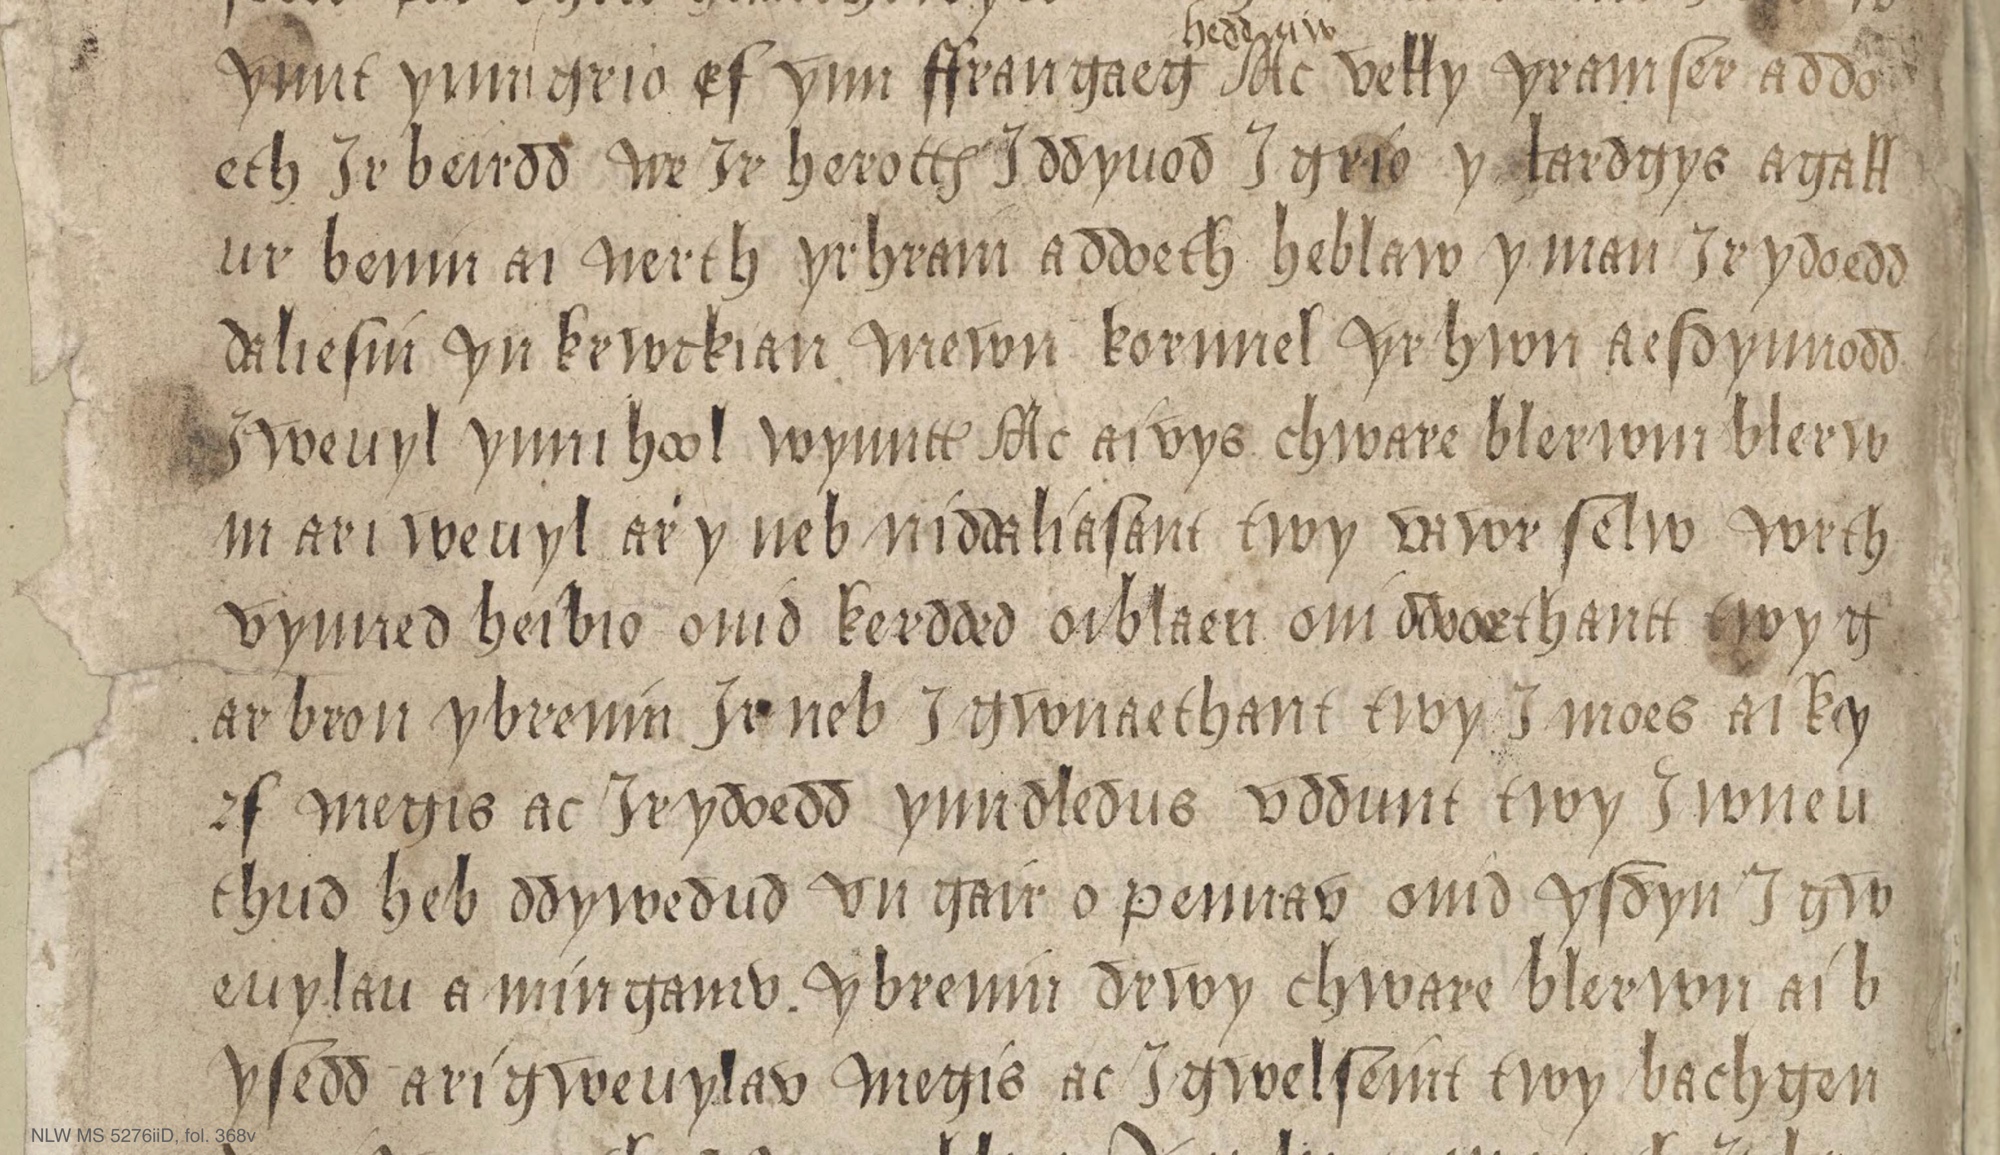 hedd iw
ynnt ynni grio ef ynn ffrangaeg Ac velly yr amser addo
eth Ir beirdd ne Ir herottz I ddyuod I grio y lardgys a gall
ur benin ai nerth yr hrain a ddoeth heblaw y man Ir ydoedd
daliesin yn krwckian mewn kornnel yr hwn a esdynnodd
I weuyl ynn i hool wynntt Ac ai vys chware blerwm blerw
m ar i weuyl ar y neb ni ddaliasant twy vawr selw wrth
vynned heibio onid kerdded oi blaen oni ddoethantt twy g
ar bron y brenin Ir neb I gwnaethant twy I moes ai ky
rf megis ac Ir ydoedd ynn dledus vddunt twy I wneu
thud heb ddywedud vn gair o pennav onid ysdyn I gw
euylau a mingamv. y brenin drwy chware blerwn ai b
ysedd ar i gweuylav megis ac I gwelseint twy bachgen
NLW MS 5276iiD, fol. 368v